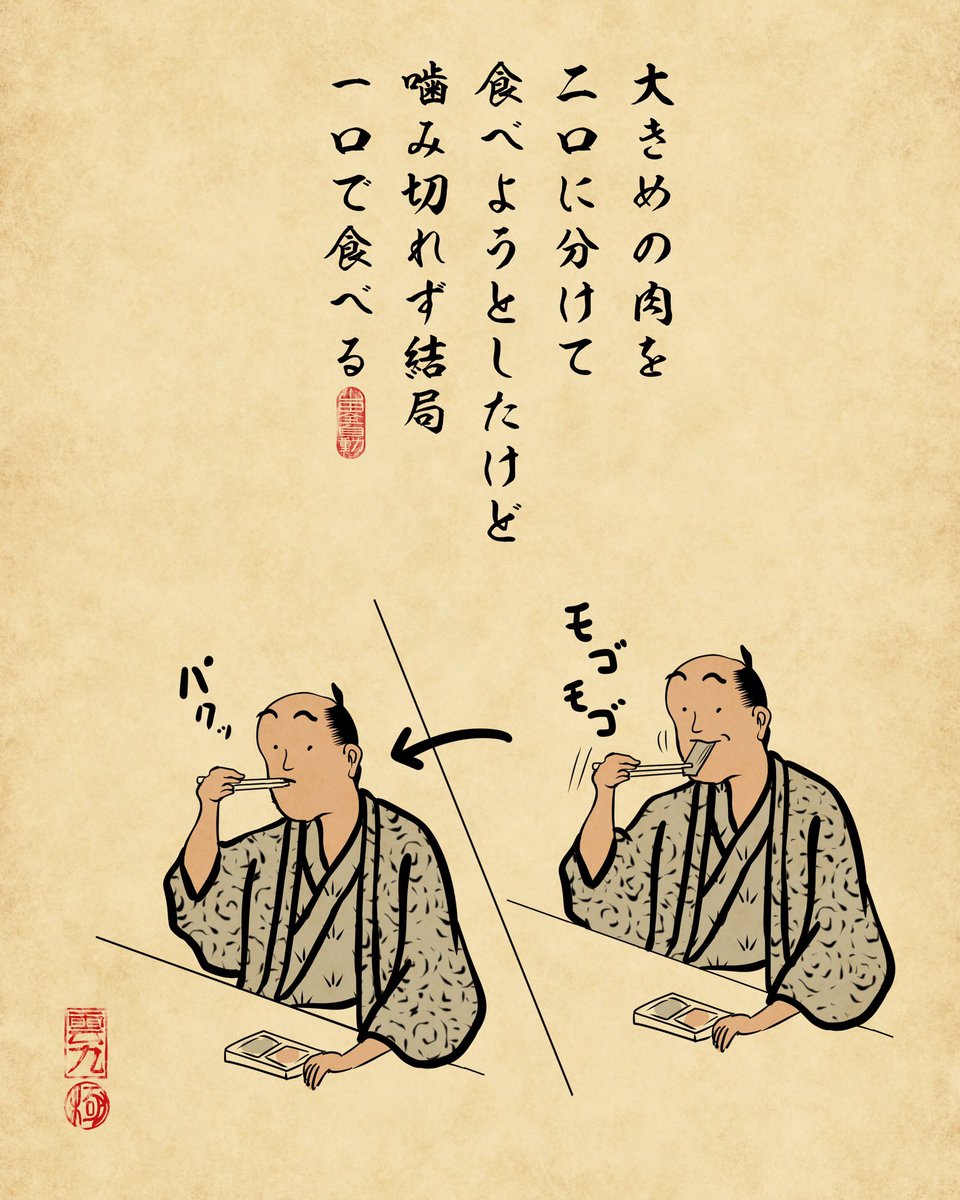 大きめの肉を
二口に分けて
食べようとしたけど
噛み切れず結局
一口で食べる
モゴモゴ
パクッ